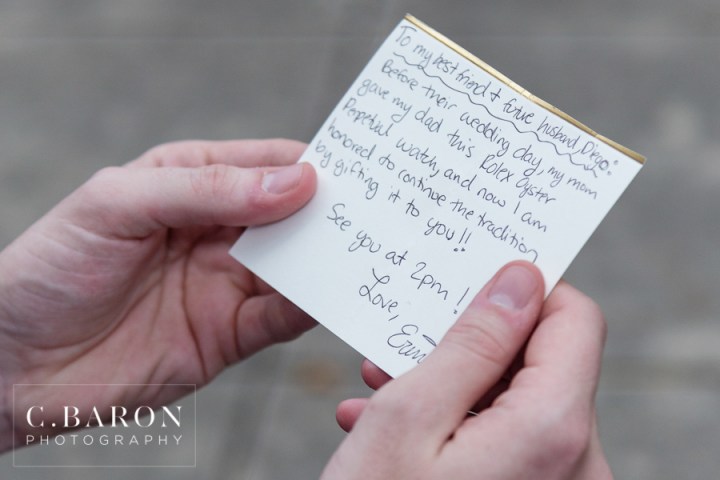 To my best friend & future husband, Diego:
Before their wedding day, my mom
gave my dad this Rolex Oyster
Perpetual watch, and now I am
honored to continue the tradition
by gifting it to you!!
See you at 2pm!
Love,
C. BARON
PHOTOGRAPHY